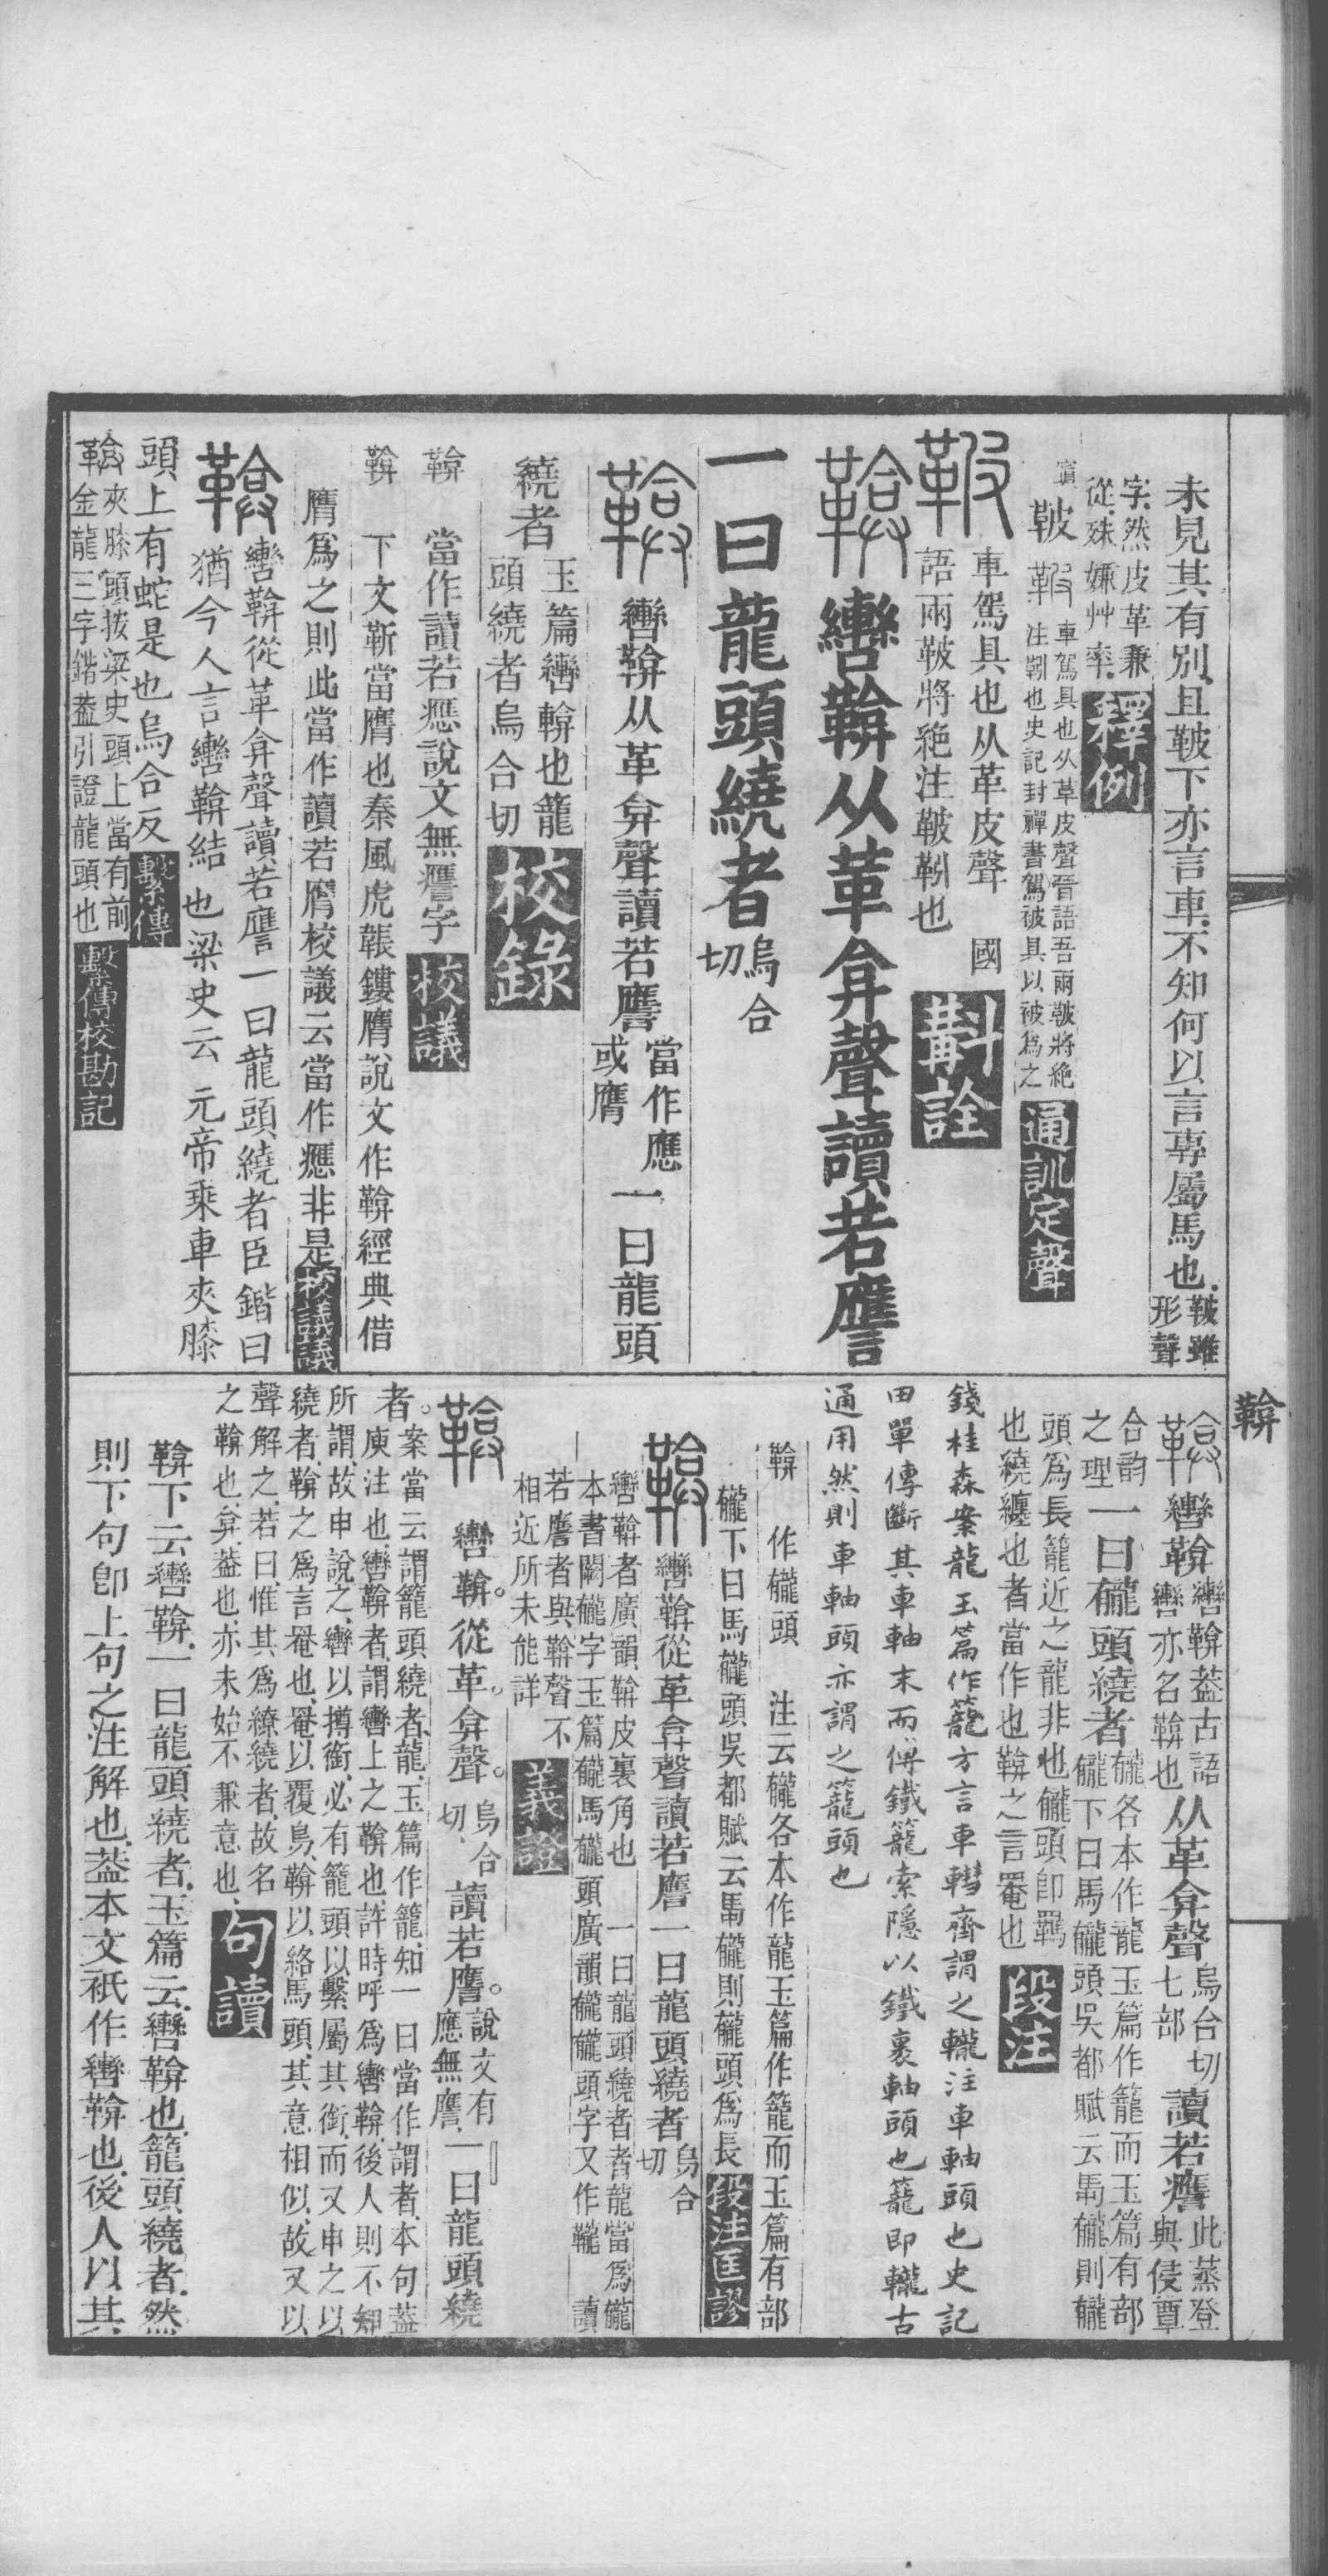 未見其有別且鞁下亦言車不知何以言專屬馬也鞁雖形聲
字然皮革兼從殊嫌艸率 釋例
鞁 車駕具也从革皮聲晉語吾兩鞁將絕注靷也史記封禪書駕被具以被爲之 通訓定聲
車駕具也从革皮聲 國語兩鞁將絕注鞁靷也 斠詮
轡鞥从革弇聲讀若譍
一曰龍頭繞者烏合切
轡鞥从革弇聲讀若譍當作應或膺一曰龍頭
繞者玉篇轡鞥也籠頭繞者烏合切 校錄
鞥 當作讀若應說文無譍字 校議
鞥 下文靳當膺也秦風虎韔鏤膺說文作鞥經典借
膺爲之則此當作讀若膺校議云當作應非是 校議議
轡鞥從革弇聲讀若譍一曰龍頭繞者臣鍇曰
猶今人言轡鞥結也梁史云元帝乘車夾膝
頭上有蛇是也烏合反 繫傳
夾膝頭按梁史頭上當有前金龍三字鍇蓋引證龍頭也 繫傳校勘記
鞥
轡鞥轡鞥蓋古語轡亦名鞥也从革弇聲烏合切七部讀若譍此蒸登與侵覃
合韵之理一曰龓頭繞者龓各本作龍玉篇作籠而玉篇有部龓下曰馬龓頭吳都賦云馬龓則龓
頭爲長籠近之龍非也龓頭卽羈也繞纏也者當作也鞥之言罨也 段注
錢桂森案龍玉篇作籠方言車轊齊謂之轆注車軸頭也史記
田單傳斷其車軸末而傅鐵籠索隱以鐵裹軸頭也籠即轆古
通用然則車軸頭亦謂之籠頭也
鞥 作龓頭 注云龓各本作龍玉篇作籠而玉篇有部
龓下曰馬龓頭吳都賦云馬龓則龓頭爲長 段注匡謬
轡鞥從革弇聲讀若譍一曰龍頭繞者烏合切
轡鞥者廣韻鞥皮裏角也 一曰龍頭繞者者龍當爲龓
本書闕龓字玉篇龓馬龓頭廣韻龓龓頭字又作韉 讀
若譍者與鞥聲不相近所未能詳 義證
轡鞥從革弇聲烏合切讀若譍說文有應無譍一曰龍頭繞
者案當云謂籠頭繞者龍玉篇作籠知一曰當作謂者本句蓋
庾注也轡鞥者謂轡上之鞥也許時呼爲轡鞥後人則不知
所謂故申說之轡以摶銜必有籠頭以繫屬其銜而又申之以
繞者鞥之爲言罨也罨以覆鳥鞥以絡馬頭其意相似故又以
聲解之若曰惟其爲繚繞者故名之鞥也弇蓋也亦未始不兼意也 句讀
鞥下云轡鞥一曰龍頭繞者玉篇云轡鞥也籠頭繞者然
則下句卽上句之注解也蓋本文祇作轡鞥也後人以其